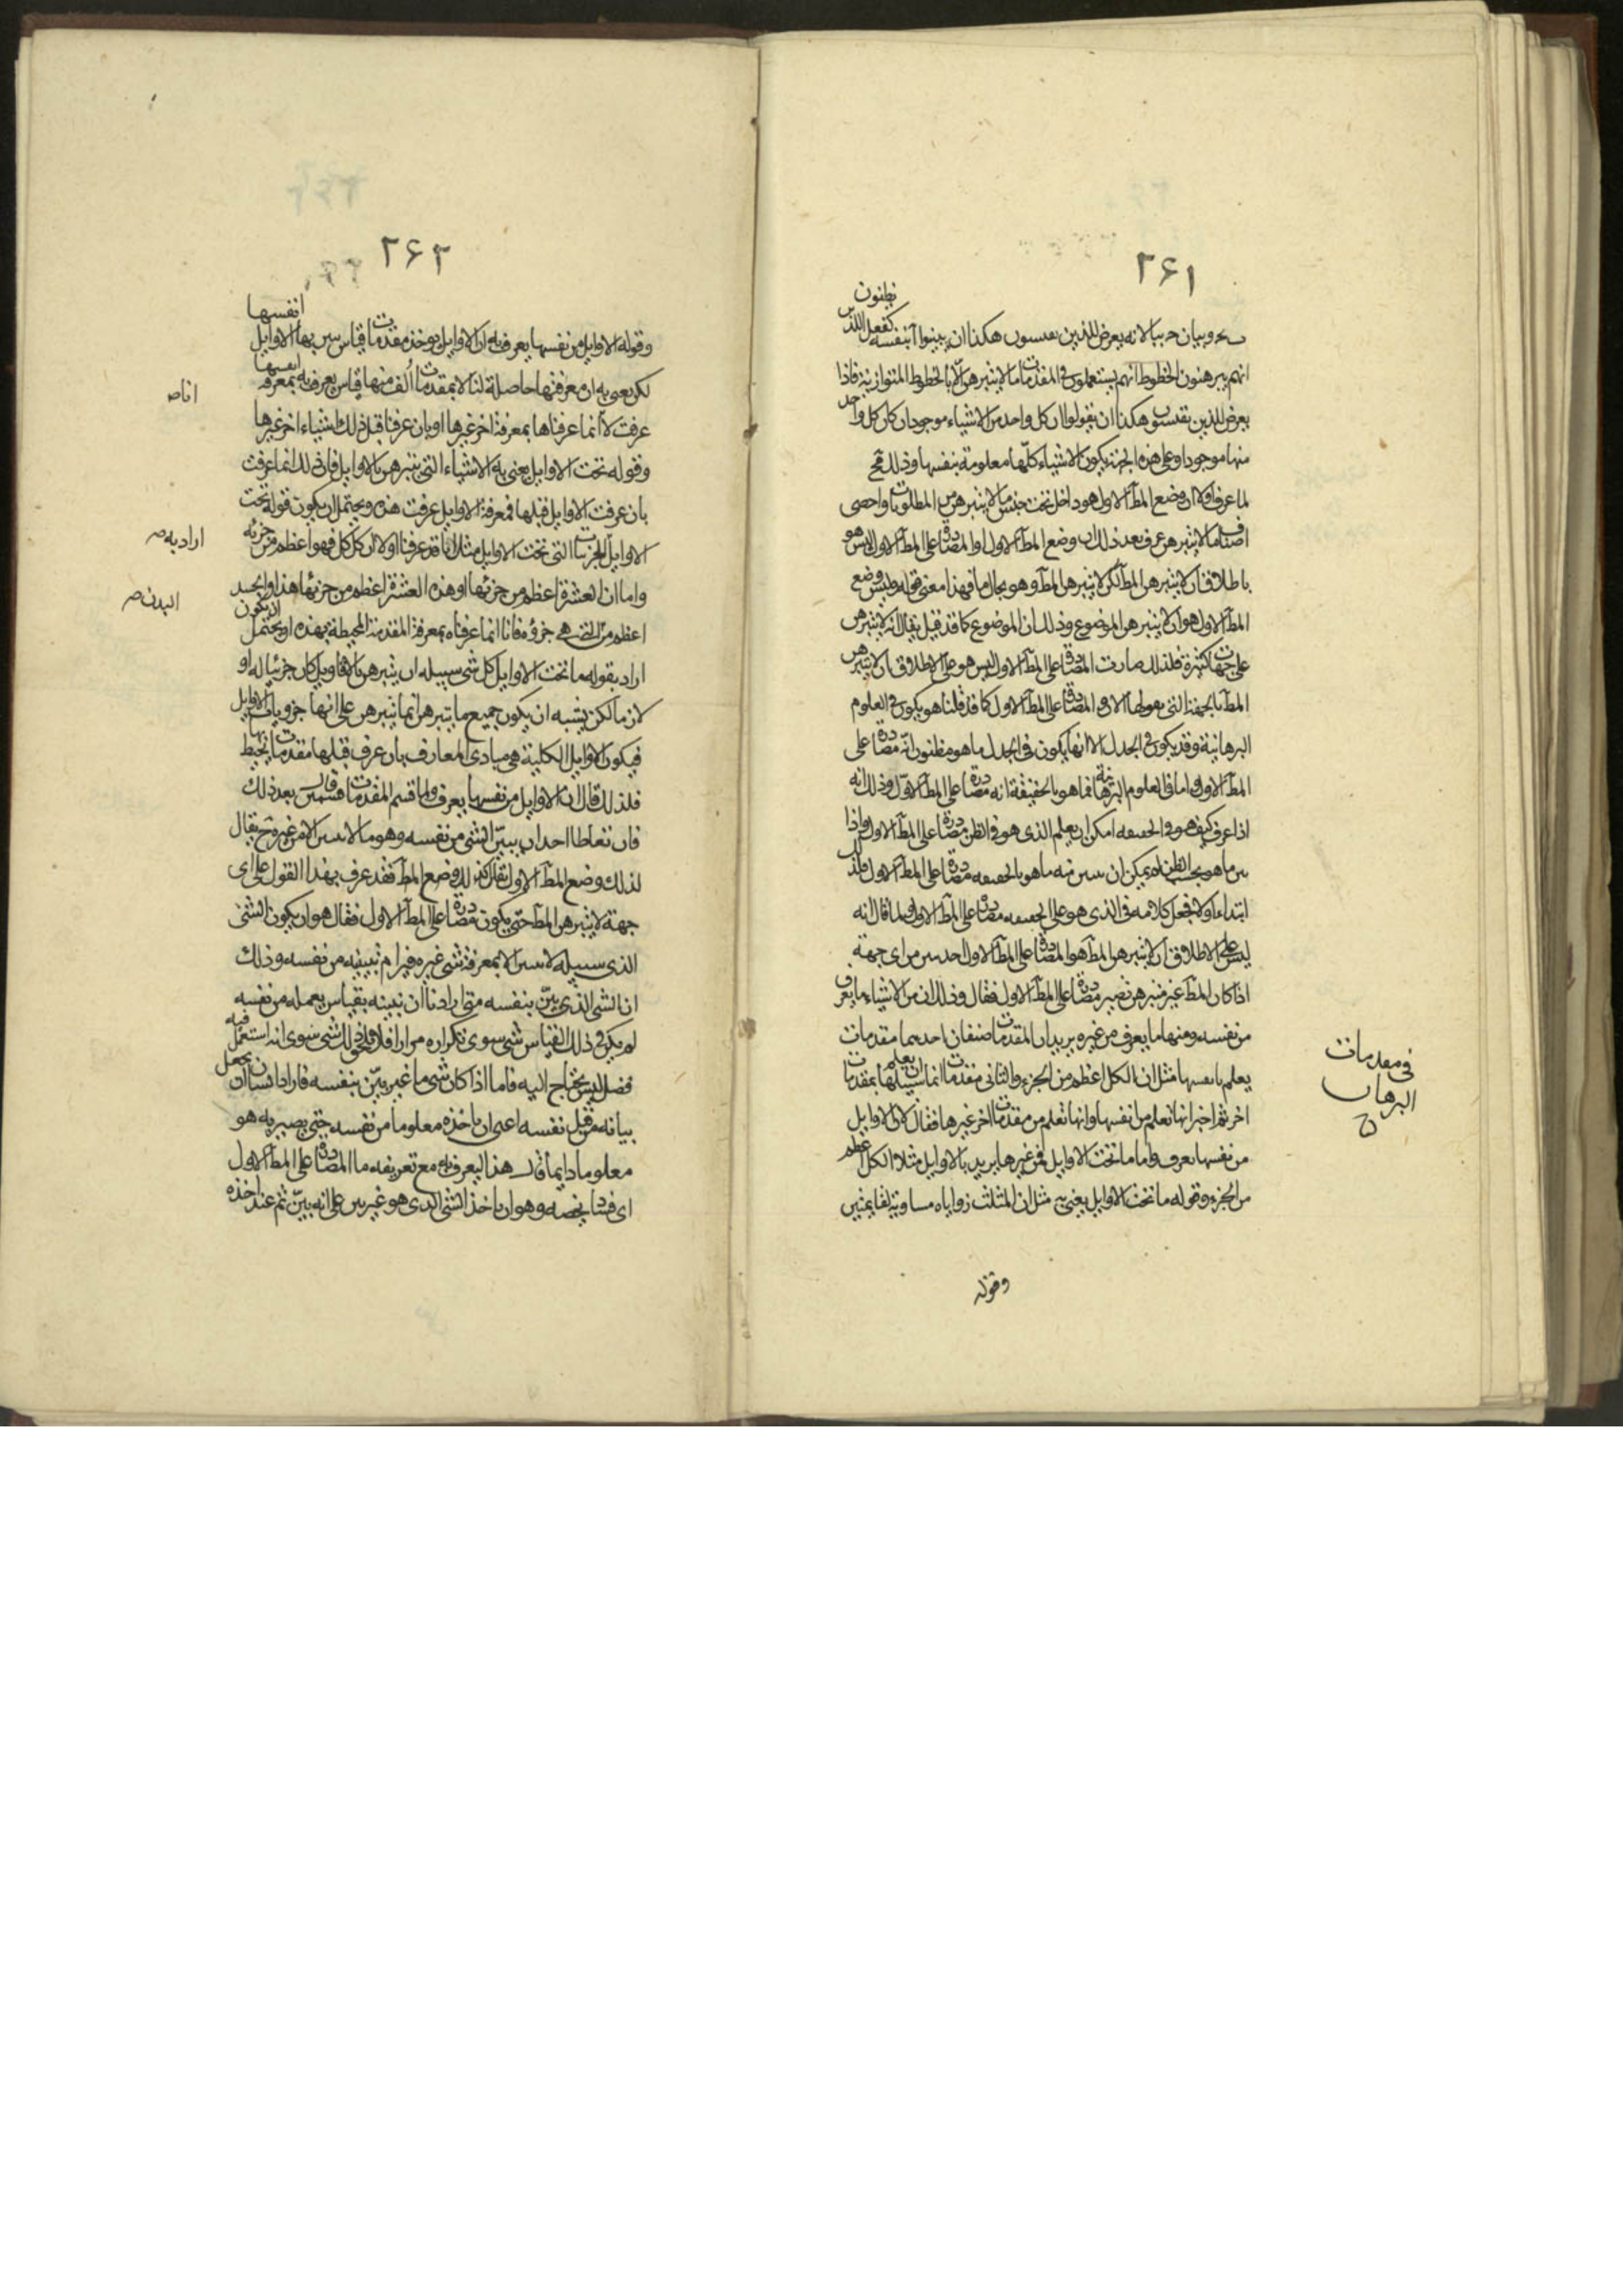 ٢٦١
يظنون
بج وبيان ج ببا لانه يعرض للذين يقيسون هكذا ان يبينوا آ بنفسه كفعل الذين
انهم يبرهنون الخطوط انهم يستعملون في المقدمات ما لا يتبرهن الا بالخطوط المتوازية فاذا
يعرض للذين يقيسون هكذا ان يقولوا ان كل واحد من الاشياء موجود ان كان كل واحد
منها موجودا وعلى هذه الجهة يكون الاشياء كلها معلومة بنفسها وذلك مح
لما عرف اولا ان وضع المط الاول هو داخل تحت جنس ما لا يتبرهن من المطلوبات واحصى
اصناف ما لا يتبرهن عرف بعد ذلك ان وضع المط الاول او المصادرة على المط الاول ليس هو
باطلاق ان لا يتبرهن المط لكن لا يتبرهن المط وهو بحال ما فهذا معنى قوله وليس وضع
المط الاول هو ان لا يتبرهن الموضوع وذلك ان الموضوع كما قد قيل يقال انه لا يتبرهن
على جهات كثيرة فلذلك صارت المصادرة على المط الاول ليس هو على الاطلاق ان لا يتبرهن
المط بالجهة التي يقولها الان والمصادرة على المط الاول كما قد قلنا هو يكون في العلوم
البرهانية وقد يكون في الجدل الا انها يكون في الجدل ما هو مظنون انه مصادرة على
المط الاول واما في العلوم البرهانية فما هو بالحقيقة انه مصادرة على المط الاول وذلك انه
اذا عرف كيف هو في الحقيقة امكن ان يعلم الذي هو في الظن مصادرة على المط الاول واذا
بين ما هو بحسب الظن لم يمكن ان يبين منه ما هو بالحقيقة مصادرة على المط الاول فلذلك
ابتداء اولا فجعل كلامه في الذي هو على الحقيقة مصادرة على المط الاول ولما قال انه
ليس على الاطلاق ان لا يتبرهن المط هو المصادرة على المط الاول اخذ يبين من اى جهة
اذا كان المط غير متبرهن تصير مصادرة على المط الاول فقال وذلك ان من الاشياء ما يعرف
من نفسه ومنها ما يعرف من غيره يريد ان المقدمات صنفان احديهما مقدمات
يعلم بانفسها مثل ان الكل اعظم من الجزء والثاني مقدمات انما سبيلها ان يعلم بمقدمات
اخر ثم اخبر انها تعلم من انفسها وانها تعلم من مقدمات اخر غيرها فقال لان الاوايل
من نفسها يعرف واما ما تحت الاوايل فمن غيرها يريد بالاوايل مثلا الكل اعظم
من الجزء وقوله ما تحت الاوايل يعني به مثل ان المثلث زواياه مساوية لقايمتين
وقوله
في مقدمات
البرهان
٢٦٢
وقوله الاوايل من نفسها يعرف به ان الاوايل يوخذ مقدمات قياس يبين بها الاوايل انفسها
لكن يعنى به ان معرفتها حاصلة لنا لا بمقدمات الف منها قياس يعرف به بمعرفة انفسها
عرفت لا انما عرفناها بمعرفة اخر غيرها او بان عرفنا قبل ذلك اشياء اخر غيرها
وقوله تحت الاوايل يعنى به الاشياء التي تتبرهن بالاوايل فان لذا انما عرفت
بان عرفت الاوايل قبلها فمعرفة الاوايل عرفت هذه ويحتمل ان يكون قوله تحت
الاوايل الجزئيات التي تحت الاوايل مثلا انا قد عرفنا اولا ان كل كل فهو اعظم من جزئه
واما ان العشرة اعظم من جزئها او هذه العشرة اعظم من جزئها هذا او الجسد
اعظم من التي هي جزؤه فانا انما عرفناه بمعرفة المقدمة المحيطة بهذه او يحتمل ان يكون
اراد بقوله ما تحت الاوايل كل شي سبيله ان يتبرهن بالاقاويل كان جزئيا له او
لازما لكن يشبه ان يكون جميع ما يتبرهن انما يتبرهن على انها جزويات الاوايل
فيكون الاوايل الكلية هي مبادى المعارف بان عرف قبلها مقدمات تحيط بها
فلذلك قال ان الاوايل من نفسها يعرف ولما قسم المقدمات قسمين قال بعد ذلك
فان تعاطا احد ان يبين الشي من نفسه وهو ما لا يبين الا من غيره ح يقال
لذلك وضع المط الاول فقد عرف بهذا القول على اى
جهة لا يتبرهن المط حتى يكون مصادرة على المط الاول فقال هو ان يكون الشي
الذي سبيله لا يبين الا بمعرفة شي غيره فيرام تبيينه من نفسه وذلك
ان الشي الذي بين بنفسه متى اردنا ان نبينه بقياس يعمله من نفسه
لم يكن في ذلك القياس شي سوى تكراره مرارا فلا يدخل ذلك شي سوى انه استعمل فيه
فضل ليس يحتاج اليه فاما اذا كان شي ما غير بين بنفسه فاراد انسان ان يجعل
بيانه من قبل نفسه اعنى ان ياخذه معلوما من نفسه حتى يصير به هو
معلوما دايما قال هذا ليعرف به مع تعريفه ما المصادرة على المط الاول
اى فساد يخصه وهو ان ياخذ الشي الذي هو غير بين على انه بين ثم عند اخذه
اناص
اراد به ص
البدن ص